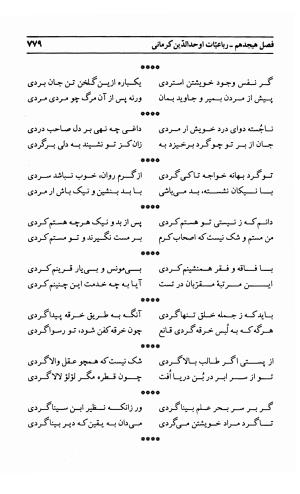 فصل هیجدهم ـ رباعیّات اوحدالدّین کرمانی ۷۷۹
****
گر نفس وجود خویشتن استردی یکباره ازین گلخن تن جان بردی
پیش از مردن بمیر و جاوید بمان ورنه پس از آن مرگ چو مردی مردی
****
ناجسته دوای درد خویش ار مردی داغی چه نهی بر دل صاحب دردی
جان از بر تو چو گرد برخیزد به زان کز تو نشیند به دلی برگردی
****
تو گرد بهانه خواجه تا کی گردی از گرم روان، خوب نباشد سردی
با نیکان نشسته، بد می‌باشی با بد بنشین و نیک باش ار مردی
****
دانم که ز نیستی تو هستم کردی پس از بد و نیک هرچه هستم کردی
من مستم و شک نیست که اصحاب کرم بر مست نگیرند و تو مستم کردی
****
با فاقه و فقر همنشینم کردی بی‌مونس و بی‌یار قرینم کردی
این مرتبهٔ مقرّبان در تست آیا به چه خدمت این چنینم کردی
****
باید که ز جمله خلق تنها گردی آنگه به طریق خرقه پیدا گردی
هرگه که به لُبس خرقه گردی قانع چون خرقه کفن شود، تو رسوا گردی
****
از پستی اگر طالب بالا گردی شک نیست که همچو عقل والا گردی
تو از سر ابر در بُن دریا اُفت چون قطره مگر لؤلؤ لالا گردی
****
گر بر سر بحر علم بینا گردی ور زانکه نظیر ابن سینا گردی
تا گرد مراد خویشتن می‌گردی می‌دان به یقین که دیر بینا گردی
****